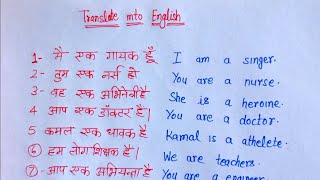 Translate into English
1- मैं एक गायक हूँ I am a singer.
2- तुम एक नर्स हो You are a nurse.
3- वह एक अभिनेत्री है She is a heroine.
4- आप एक डॉक्टर है। You are a doctor.
5 कमल एक धावक है Kamal is a athelete.
6 हम लोग शिक्षक है। We are teachers.
7- आप एक अभियन्ता है You are a engineer.